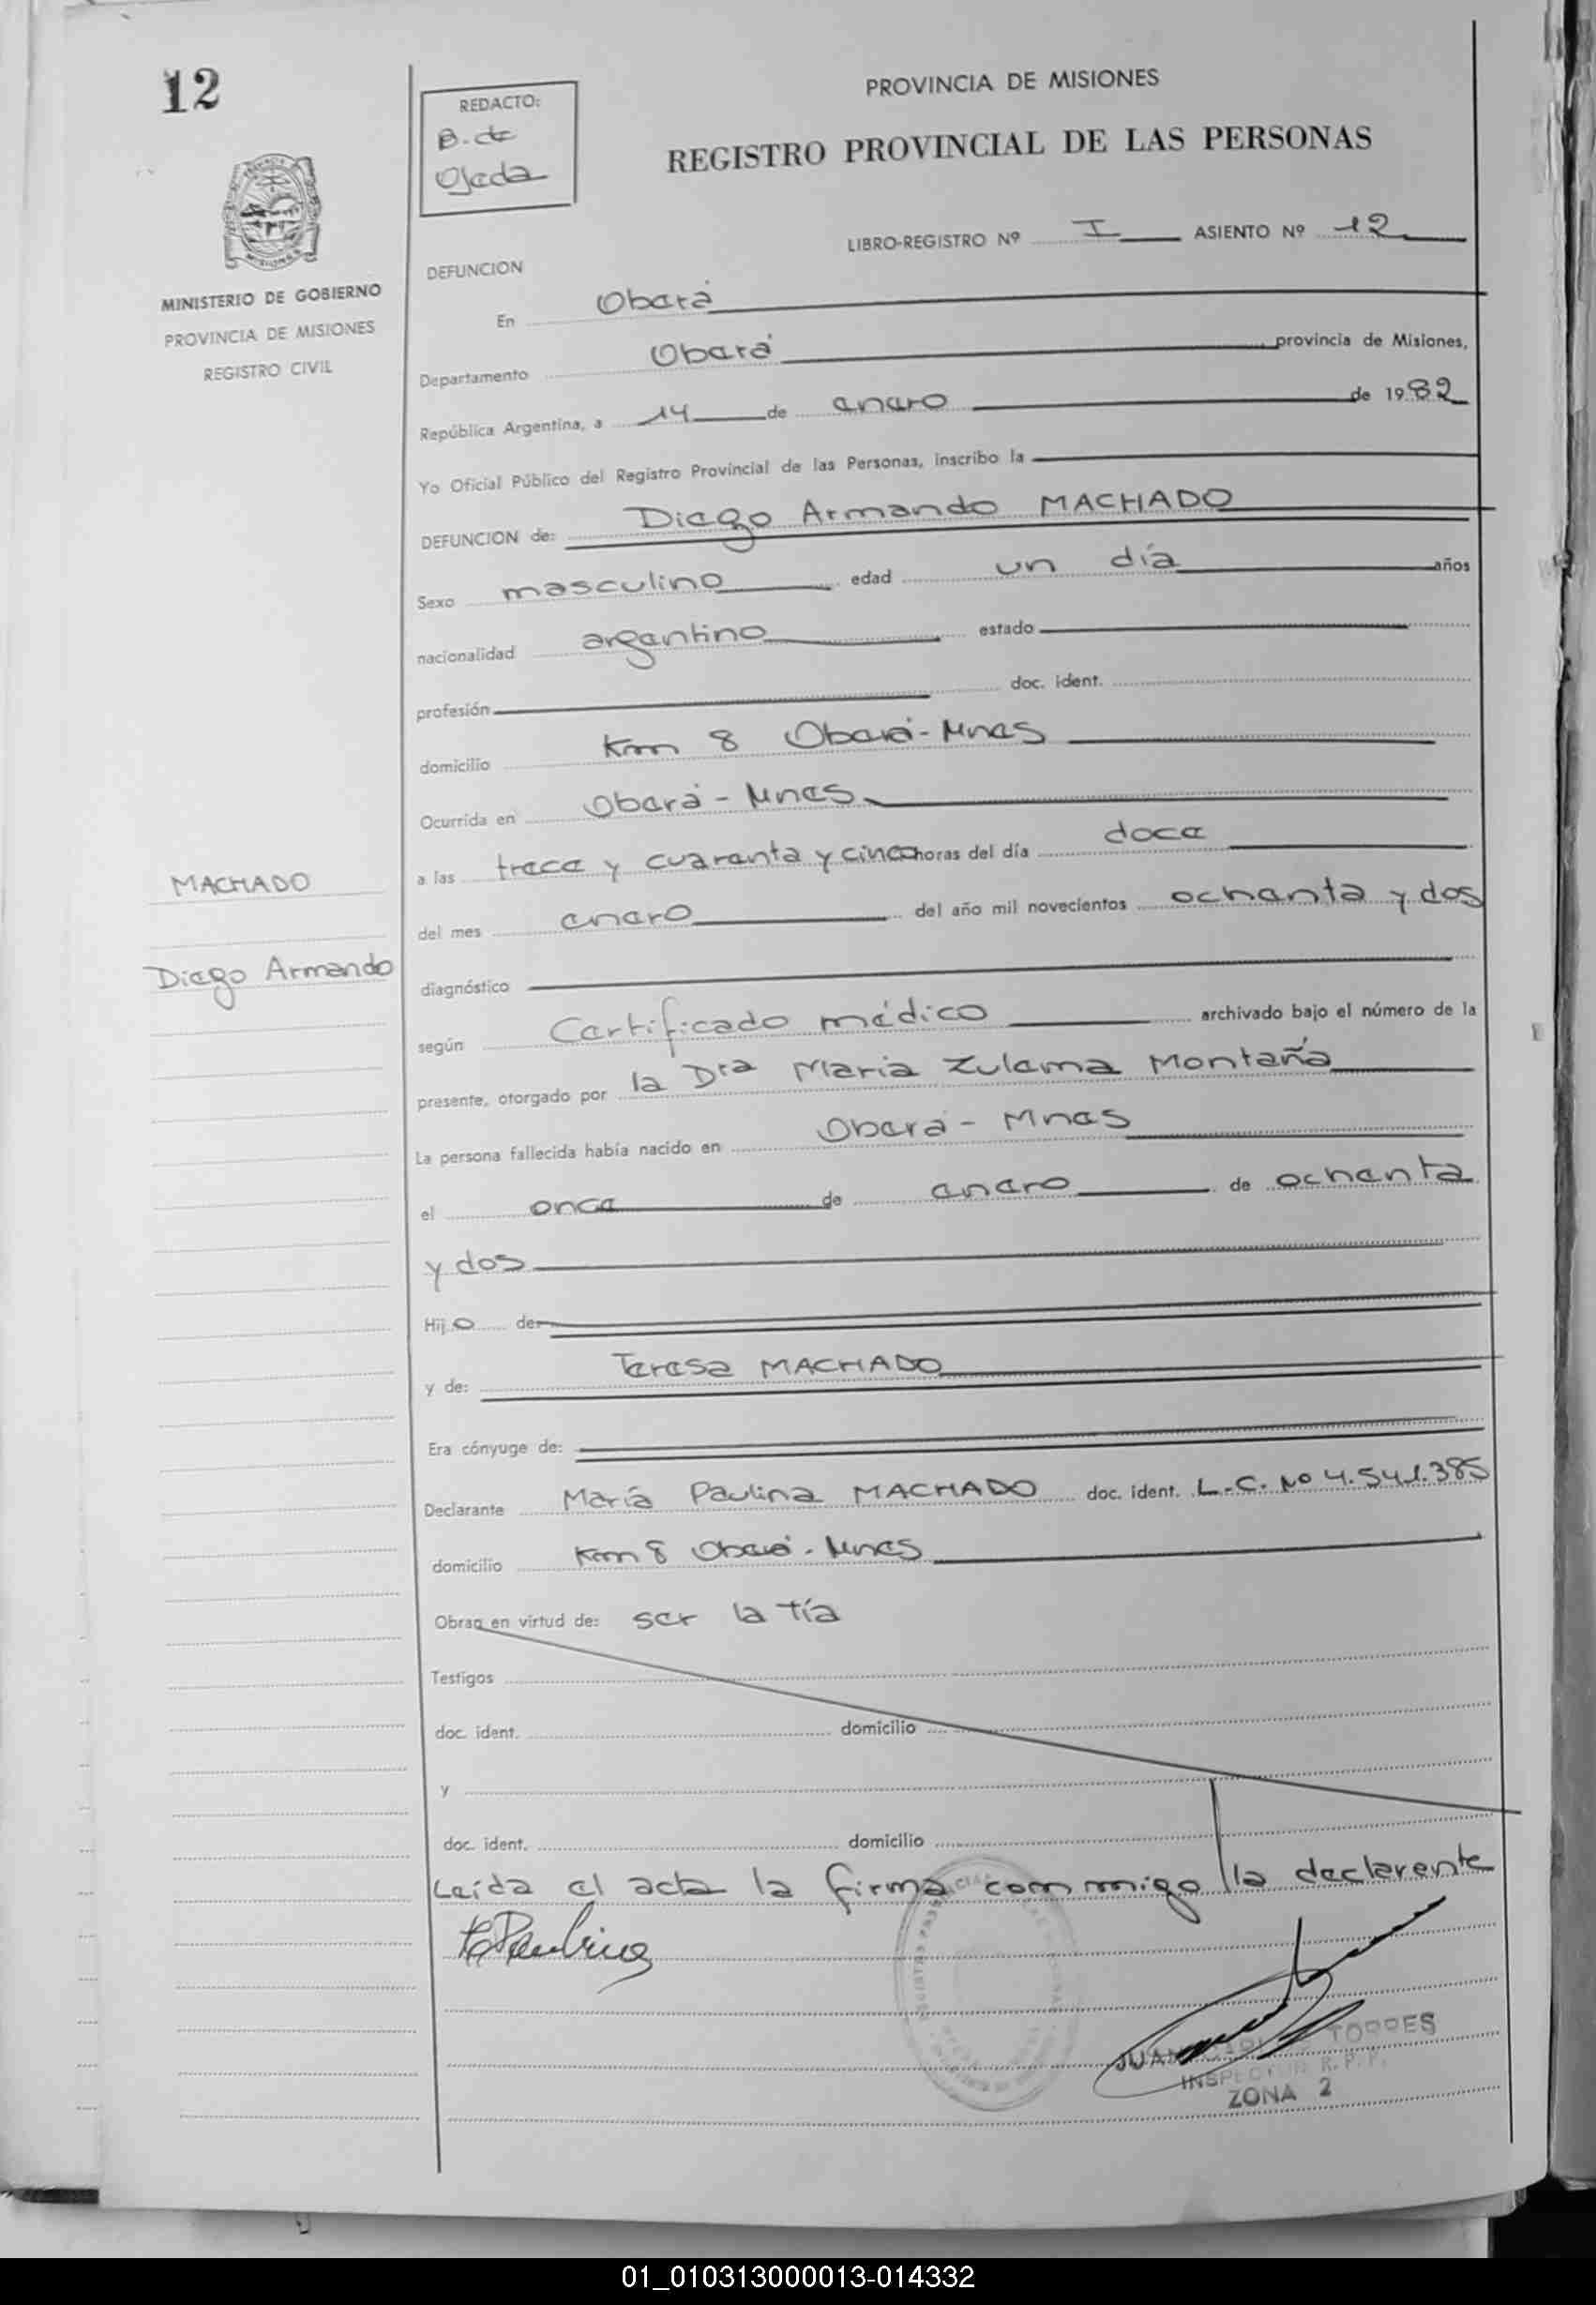 12
REDACTO:
B. de
Ojeda
PROVINCIA DE MISIONES
REGISTRO PROVINCIAL DE LAS PERSONAS
MINISTERIO DE GOBIERNO
PROVINCIA DE MISIONES
REGISTRO CIVIL
LIBRO-REGISTRO Nº I ASIENTO Nº 12
DEFUNCION
En Oberá
Departamento Oberá provincia de Misiones,
República Argentina, a 14 de enero de 1982
Yo Oficial Público del Registro Provincial de las Personas, inscribo la
DEFUNCION de: Diego Armando MACHADO
Sexo masculino edad un día años
nacionalidad argentino estado
profesión doc. ident.
domicilio Km 8 Oberá - Mnes
Ocurrida en Oberá - Mnes
a las trece y cuarenta y cinco horas del día doce
del mes enero del año mil novecientos ochenta y dos
MACHADO
Diego Armando
diagnóstico
según Certificado médico archivado bajo el número de la
presente, otorgado por la Dra Maria Zulema Montaña
La persona fallecida había nacido en Oberá - Mnes
el once de enero de ochenta
y dos
Hijo de:
y de: Teresa MACHADO
Era cónyuge de:
Declarante María Paulina MACHADO doc. ident. L.C. Nº 4.541.385
domicilio Km 8 Oberá - Mnes
Obrao en virtud de: ser la tía
Testigos
doc. ident. domicilio
y
doc. ident. domicilio
Leída el acta la firma conmigo la declarente
Paulina
JUAN TORRES
INSPECTOR R.P.P.
ZONA 2
01_010313000013-014332